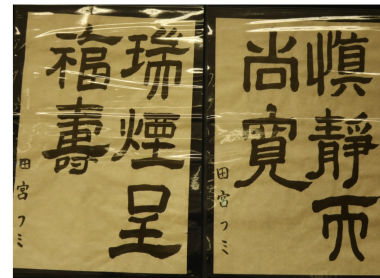 慎靜而
尚寛
田宮フミ
瑞煙呈
福壽
田宮フミ